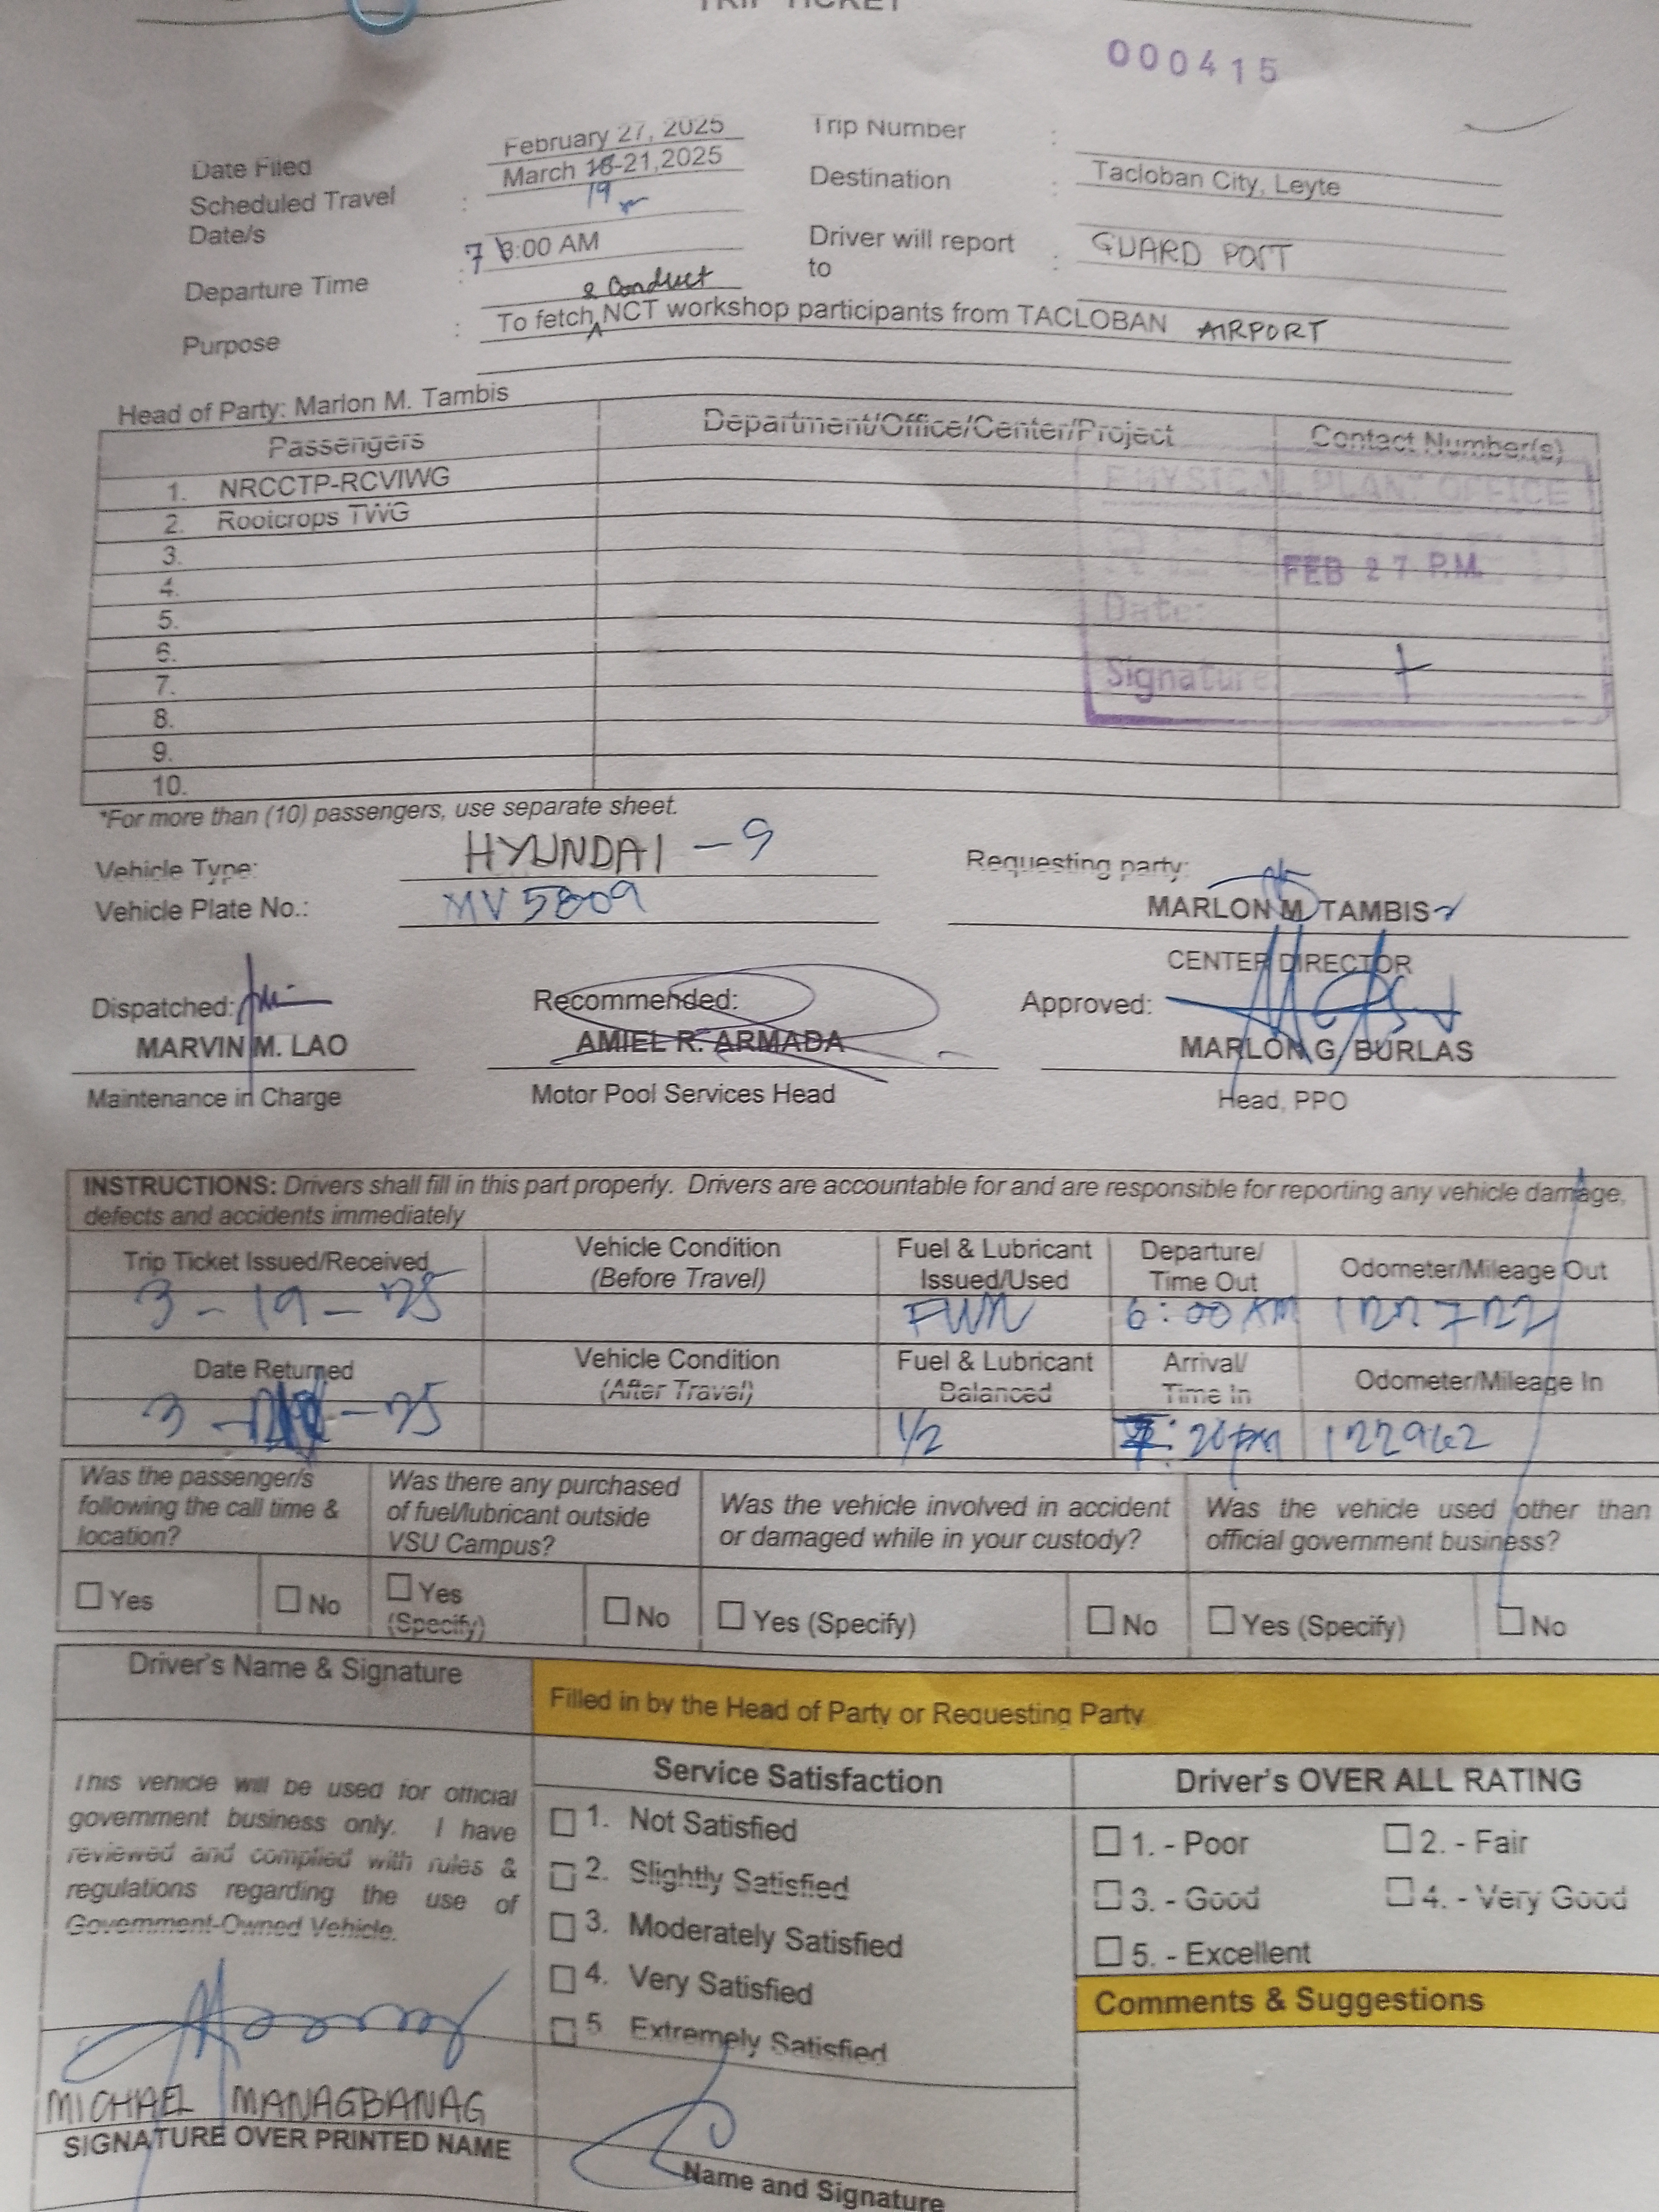 TRIP TICKET
000415
Date Filed February 27, 2025 Trip Number :
Scheduled Travel Date/s : March 18-21,2025 Destination : Tacloban City, Leyte
19
Departure Time : 7 8:00 AM Driver will report to : GUARD POST
& Conduct
Purpose : To fetch NCT workshop participants from TACLOBAN AIRPORT
Head of Party: Marlon M. Tambis
Passengers Department/Office/Center/Project Contact Number(s)
1. NRCCTP-RCVIWG
2. Rootcrops TWG
3.
4.
5.
6.
7.
8.
9.
10.
PHYSICAL PLANT OFFICE
RECEIVED
FEB 27 P.M.
Date:
Signature
*For more than (10) passengers, use separate sheet.
Vehicle Type: HYUNDAI - 9 Requesting party:
Vehicle Plate No.: MV 5809 MARLON M TAMBIS
CENTER DIRECTOR
Dispatched: Recommended: Approved:
MARVIN M. LAO AMIEL R. ARMADA MARLON G. BURLAS
Maintenance in Charge Motor Pool Services Head Head, PPO
INSTRUCTIONS: Drivers shall fill in this part properly. Drivers are accountable for and are responsible for reporting any vehicle damage,
defects and accidents immediately
Trip Ticket Issued/Received Vehicle Condition (Before Travel) Fuel & Lubricant Issued/Used Departure/ Time Out Odometer/Mileage Out
3-19-25 6:00 AM 122722
Date Returned Vehicle Condition (After Travel) Fuel & Lubricant Balanced Arrival/ Time In Odometer/Mileage In
3 - -25 1/2 :20pm 122962
Was the passenger/s following the call time & location? Was there any purchased of fuel/lubricant outside VSU Campus? Was the vehicle involved in accident or damaged while in your custody? Was the vehicle used other than official government business?
Yes No Yes (Specify) No Yes (Specify) No Yes (Specify) No
Driver's Name & Signature
Filled in by the Head of Party or Requesting Party
This vehicle will be used for official
government business only. I have
reviewed and complied with rules &
regulations regarding the use of
Government-Owned Vehicle.
MICHAEL MANAGBANAG
SIGNATURE OVER PRINTED NAME
Service Satisfaction
1. Not Satisfied
2. Slightly Satisfied
3. Moderately Satisfied
4. Very Satisfied
5 Extremely Satisfied
Name and Signature
Driver's OVER ALL RATING
1. - Poor 2. - Fair
3. - Good 4. - Very Good
5. - Excellent
Comments & Suggestions